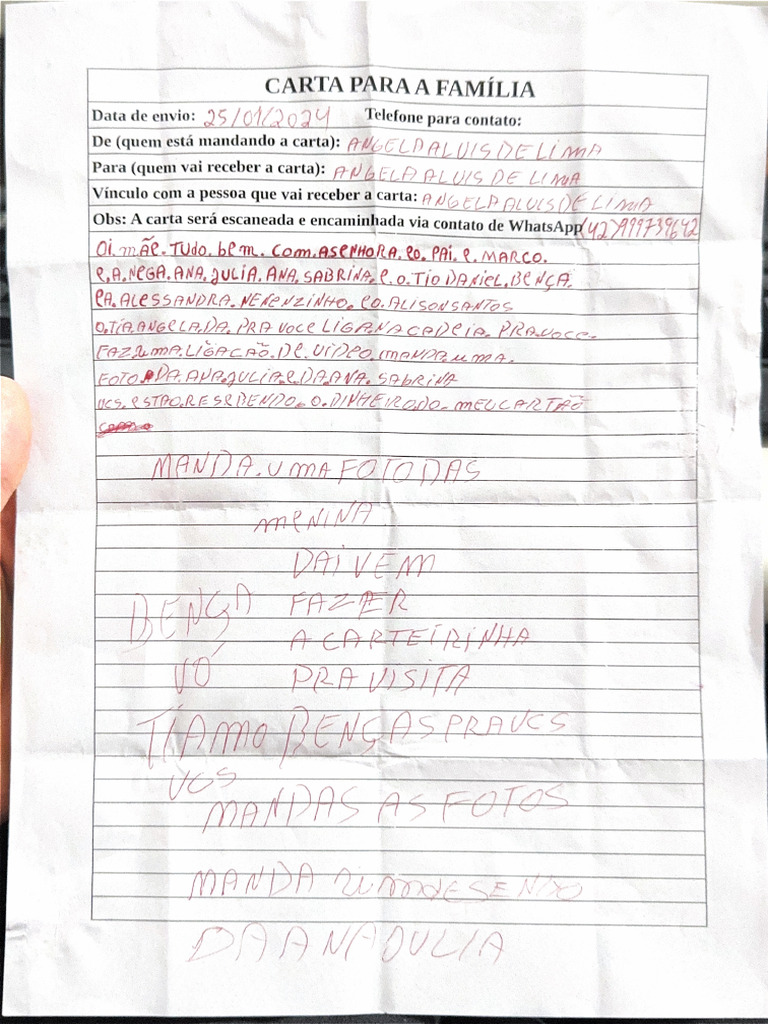 CARTA PARA A FAMÍLIA
Data de envio: 25/01/2024 Telefone para contato:
De (quem está mandando a carta): ANGELA ALUIS DE LIMA
Para (quem vai receber a carta): ANGELA ALUIS DE LIMA
Vínculo com a pessoa que vai receber a carta: ANGELA ALUIS DE LIMA
Obs: A carta será escaneada e encaminhada via contato de WhatsApp (42)999739642
Oi. mãe. TUDO. bem. COM. ASENHORA. eo. PAi. e. MARCO.
e. A. NEGA. ANA. JULIA. ANA. SABRINA. e. o. TIO DANIEL. BENÇA
eA. ALESSANDRA. NENENZINHO. eo. ALISON SANTOS
O. TIA. ANGELA. DA. PRA VOCE LIGA NA CADEIA. PRA. VOCE.
FAZ. UMA. LIGACÃO. DE. VIDEO. MANDA. UMA.
FOTO. DA. ANA. JULIA. e. DA. ANA. SABRINA
VCS. ESTAO. RESEBENDO. O. DINHEIRO. DO. MEU CARTÃO
MANDA. UMA FOTO DAS
MENINA
DAI VEM
BENÇA FAZER
A CARTEIRINHA
VÓ PRA VISITA
TIAMO BENÇAS PRA VCS
VCS
MANDAS AS FOTOS
MANDA
DA ANA JULIA